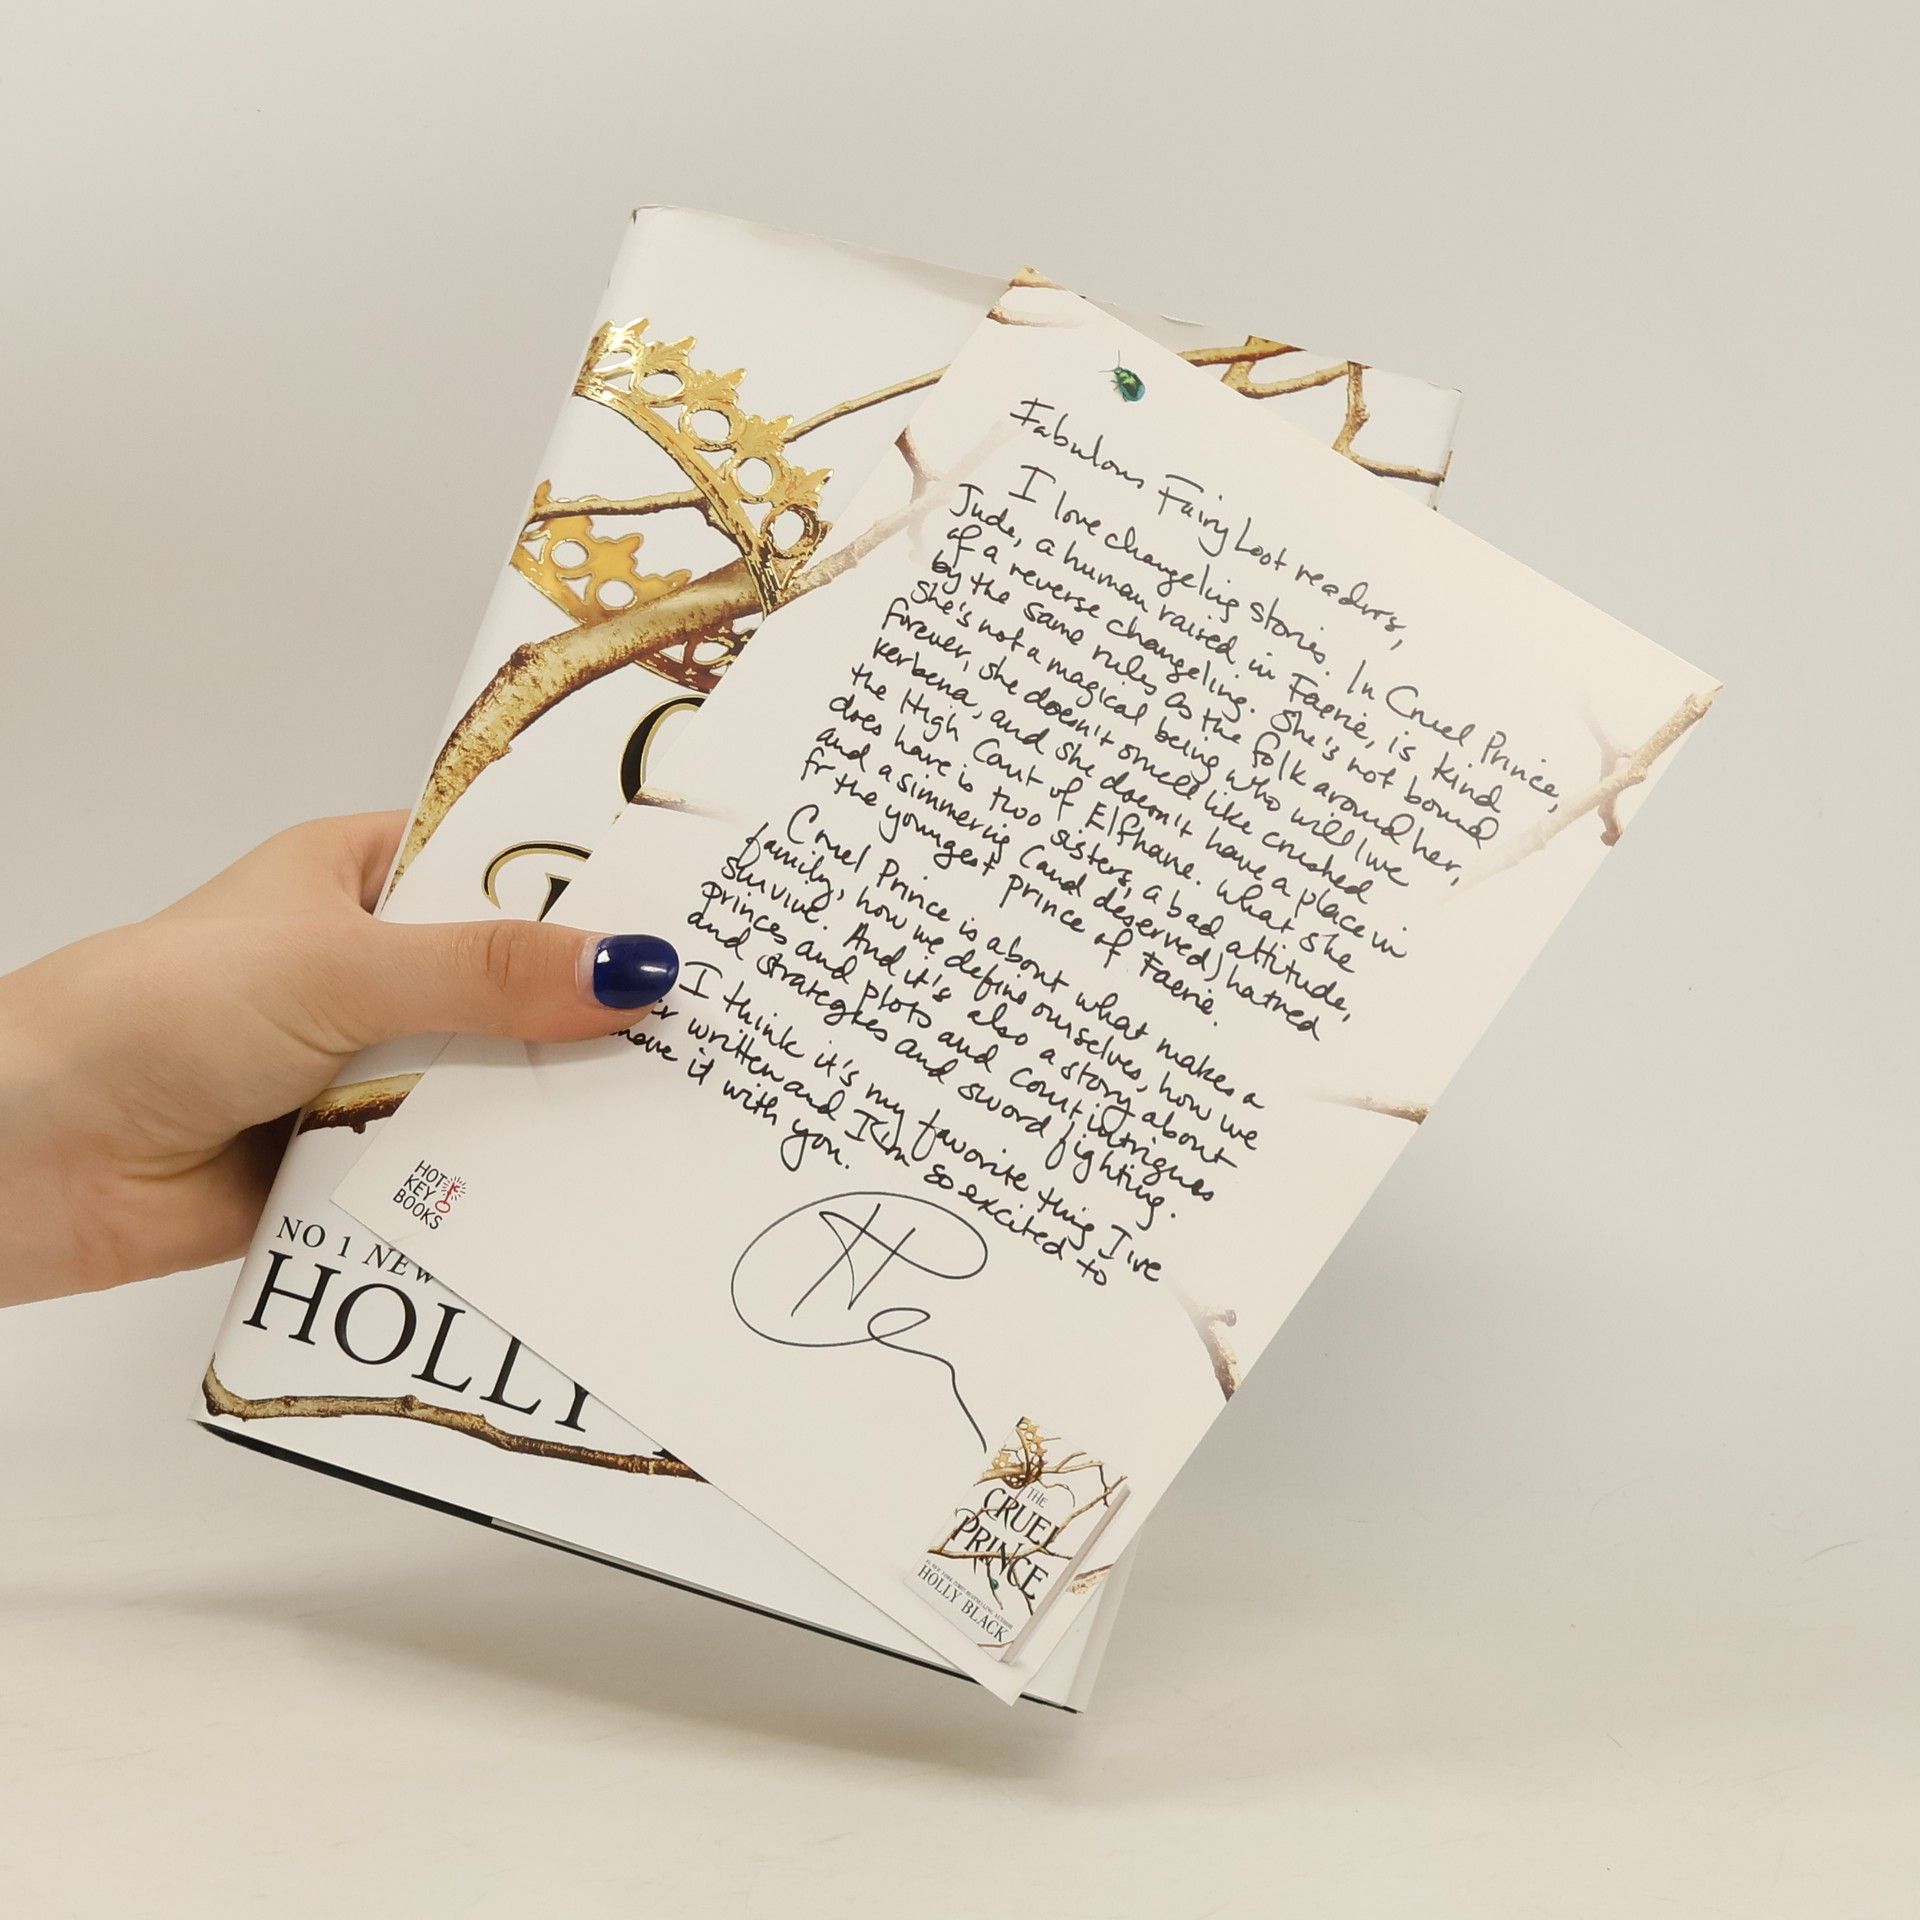 Fabulous FairyLoot readers,
I love changeling stories. In Cruel Prince,
Jude, a human raised in Faerie, is kind
of a reverse changeling. She's not bound
by the same rules as the folk around her,
She's not a magical being who will live
forever, she doesn't smell like crushed
verbena, and she doesn't have a place in
the High Court of Elfhame. What she
does have is two sisters, a bad attitude,
and a simmering (and deserved) hatred
for the youngest prince of Faerie.
Cruel Prince is about what makes a
family, how we define ourselves, how we
survive. And it's also a story about
princes and plots and court intrigues
and strategies and sword fighting.
I think it's my favorite thing I've
written and I'm so excited to
it with you.
HOT
KEY
BOOKS
NO 1 NEW
HOLLY
THE
CRUEL
PRINCE
HOLLY BLACK